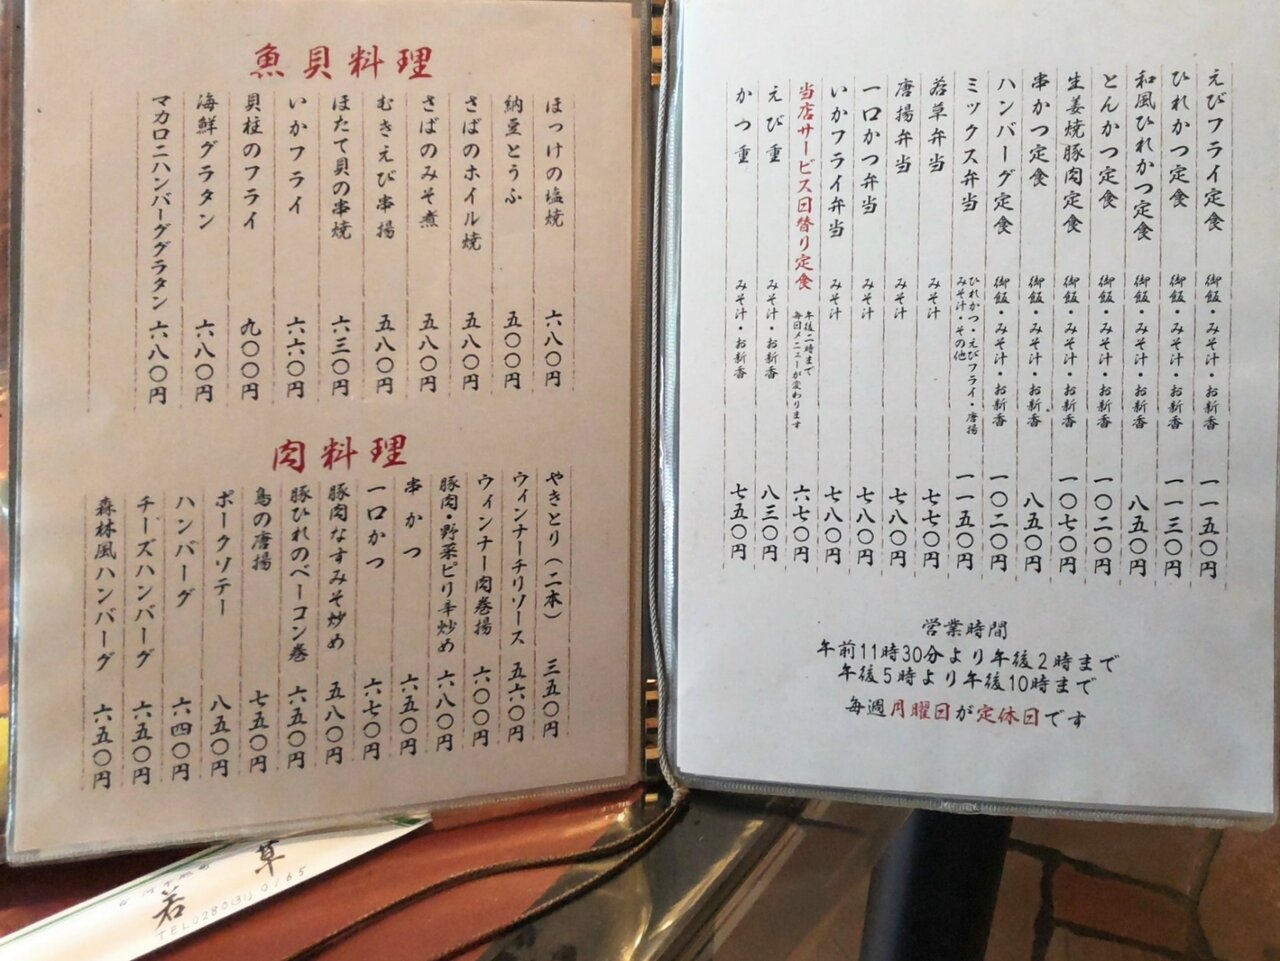 えびフライ定食 御飯・みそ汁・お新香 一一五〇円
ひれかつ定食 御飯・みそ汁・お新香 一一三〇円
和風ひれかつ定食 御飯・みそ汁・お新香 八五〇円
とんかつ定食 御飯・みそ汁・お新香 一〇二〇円
生姜焼豚肉定食 御飯・みそ汁・お新香 一〇七〇円
串かつ定食 御飯・みそ汁・お新香 八五〇円
ハンバーグ定食 御飯・みそ汁・お新香 一〇二〇円
ミックス弁当 ひれかつ・えびフライ・唐揚 一一五〇円
みそ汁・その他
若草弁当 みそ汁 七七〇円
唐揚弁当 みそ汁 七八〇円
一口かつ弁当 みそ汁 七八〇円
いかフライ弁当 みそ汁 七八〇円
当店サービス日替り定食 午後二時まで 六七〇円
毎回メニューが変わります
えび重 みそ汁・お新香 八三〇円
かつ重 みそ汁・お新香 七五〇円
営業時間
午前11時30分より午後2時まで
午後5時より午後10時まで
毎週月曜日が定休日です
魚貝料理
ほっけの塩焼 六八〇円
納豆とうふ 五〇〇円
さばのホイル焼 五八〇円
さばのみそ煮 五八〇円
むきえび串揚 五八〇円
ほたて貝の串焼 六三〇円
いかフライ 六六〇円
貝柱のフライ 九〇〇円
海鮮グラタン 六八〇円
マカロニハンバーググラタン 六八〇円
肉料理
やきとり(二本) 三五〇円
ウィンナーチリソース 五六〇円
ウィンナー肉巻揚 六〇〇円
豚肉・野菜ピリ辛炒め 六八〇円
串かつ 六五〇円
一口かつ 六七〇円
豚肉なすみそ炒め 五八〇円
豚ひれのベーコン巻 六五〇円
鳥の唐揚 七五〇円
ポークソテー 八五〇円
ハンバーグ 六四〇円
チーズハンバーグ 六五〇円
森林風ハンバーグ 六五〇円
若草
TEL0280(31)0165